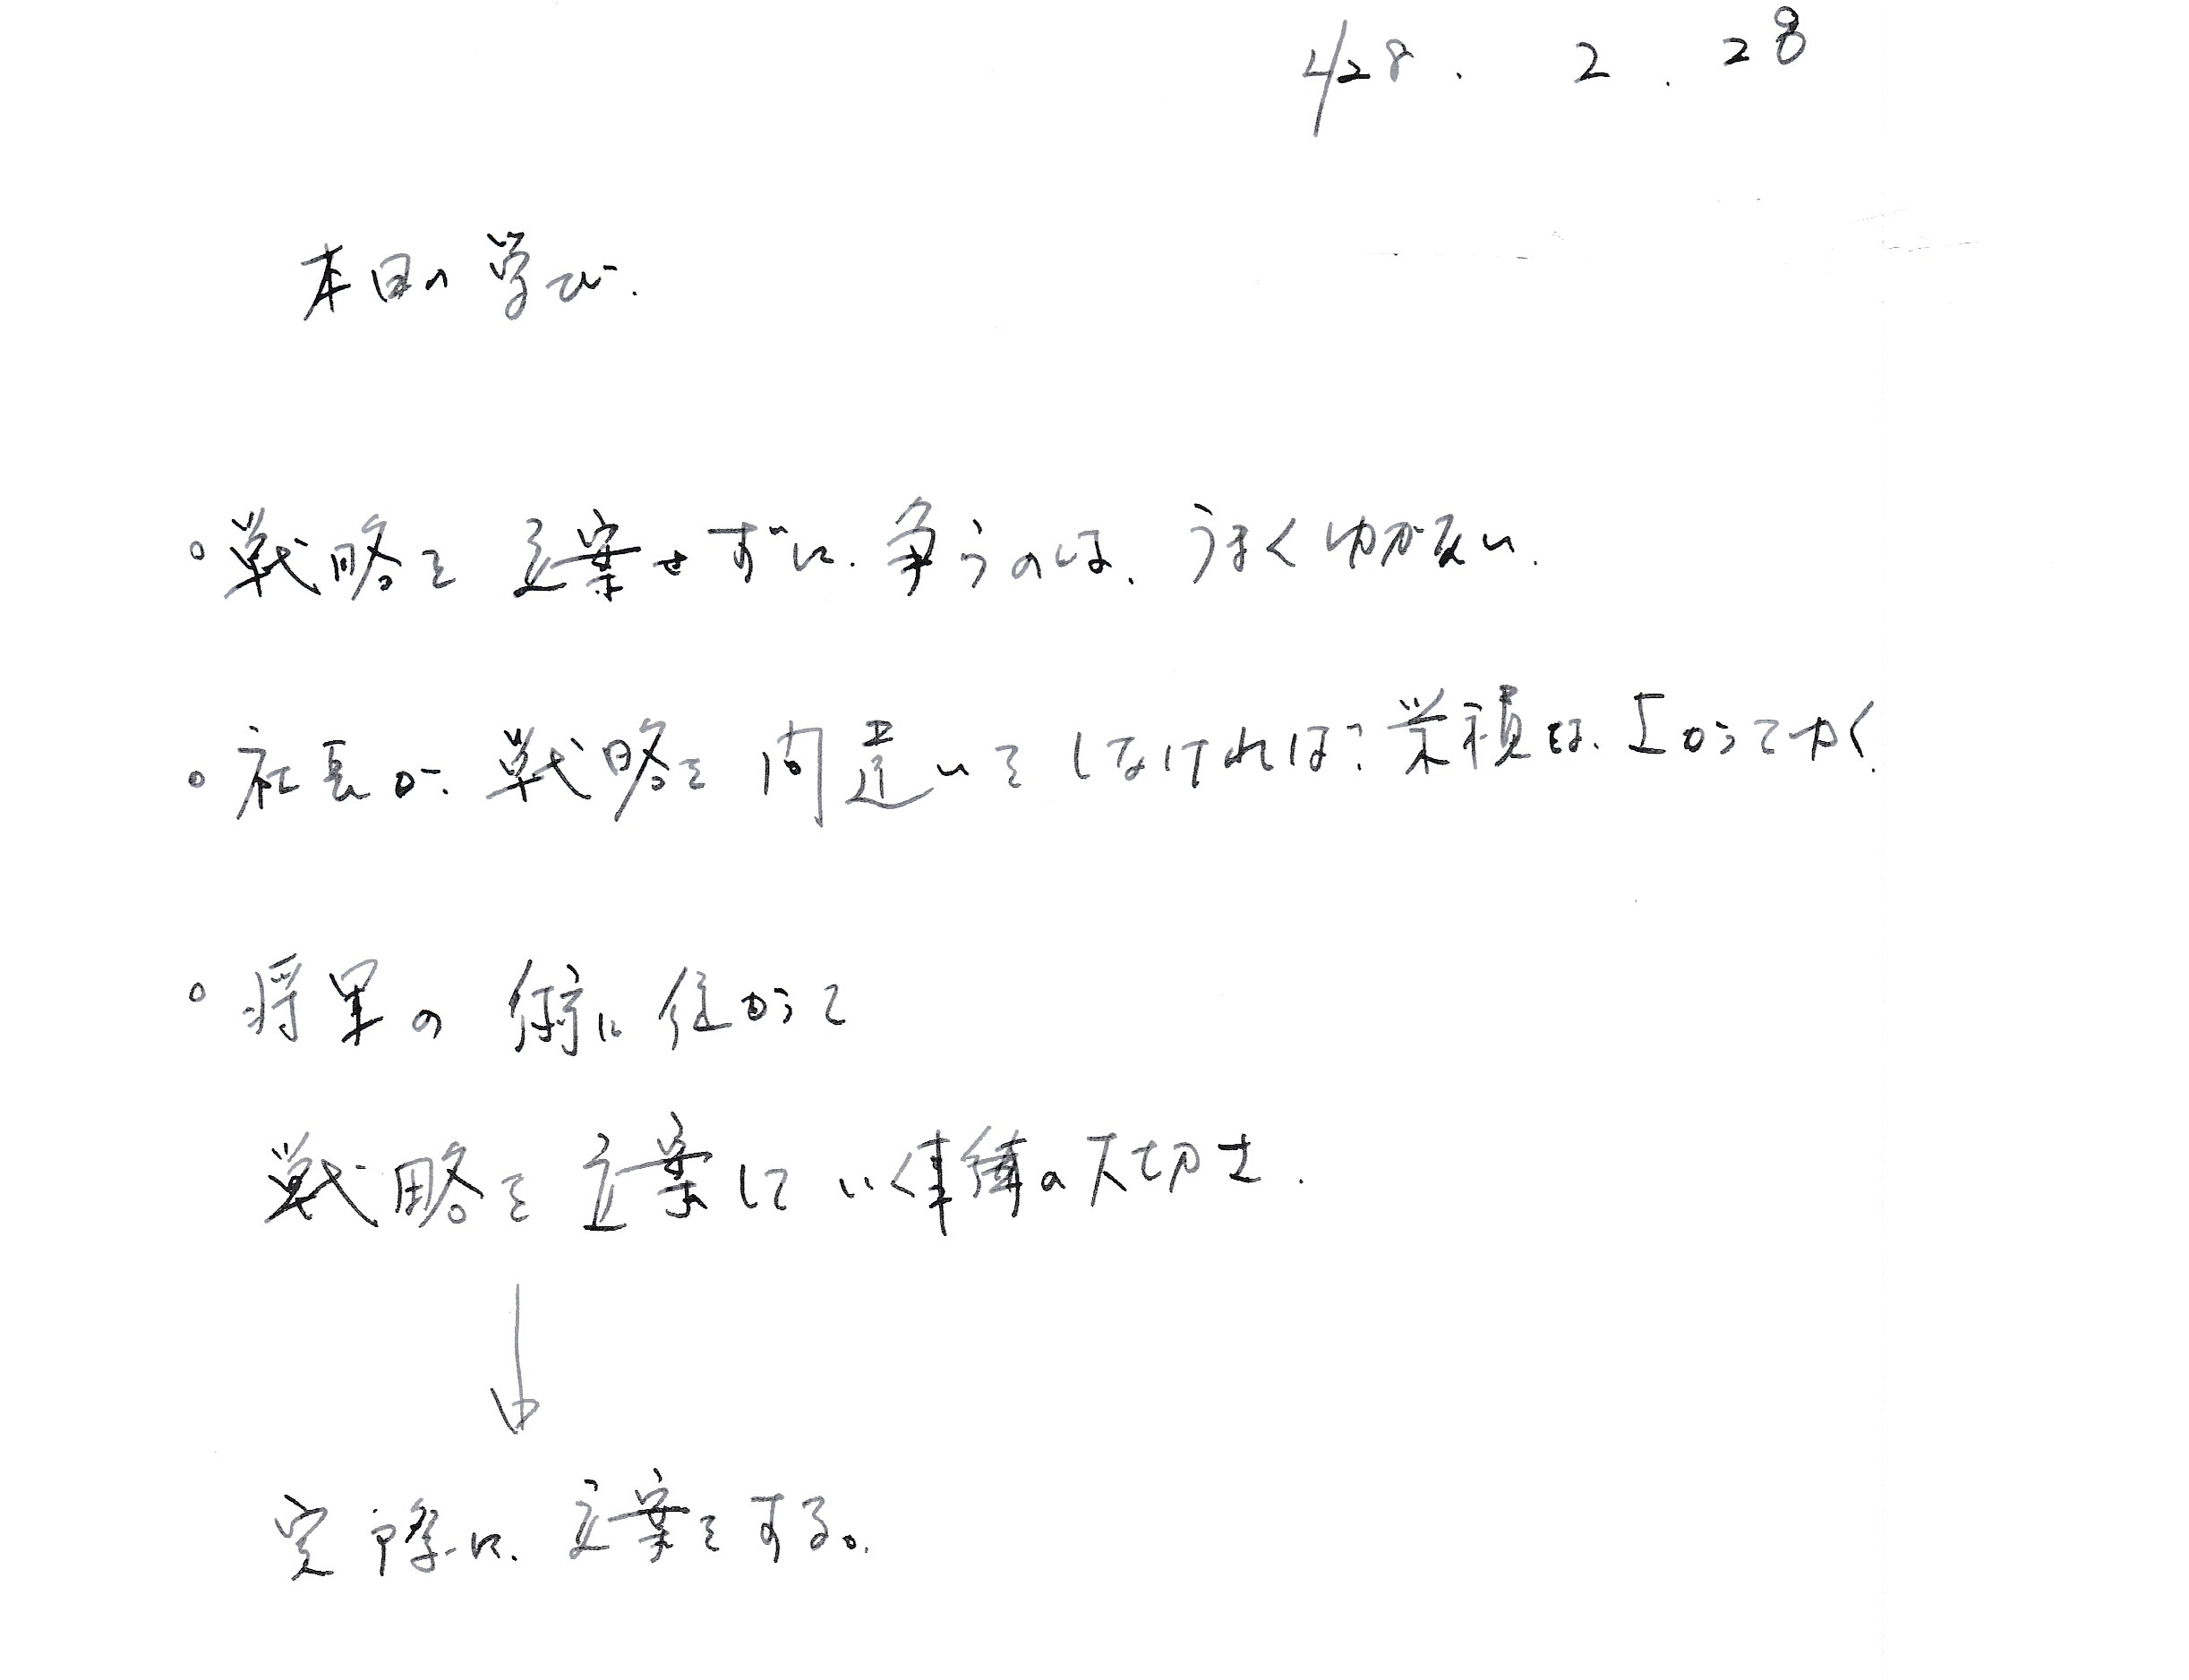 H28. 2. 28
本日の学び.
○ 戦略を立案せずに. 争うのは、うまくゆかない.
○ 社長が 戦略を間違いをしなければ 業績は、上がってゆく.
○ 将軍の術に従がって
戦略を立案していく事の大切さ.
↓
実際に. 立案をする。